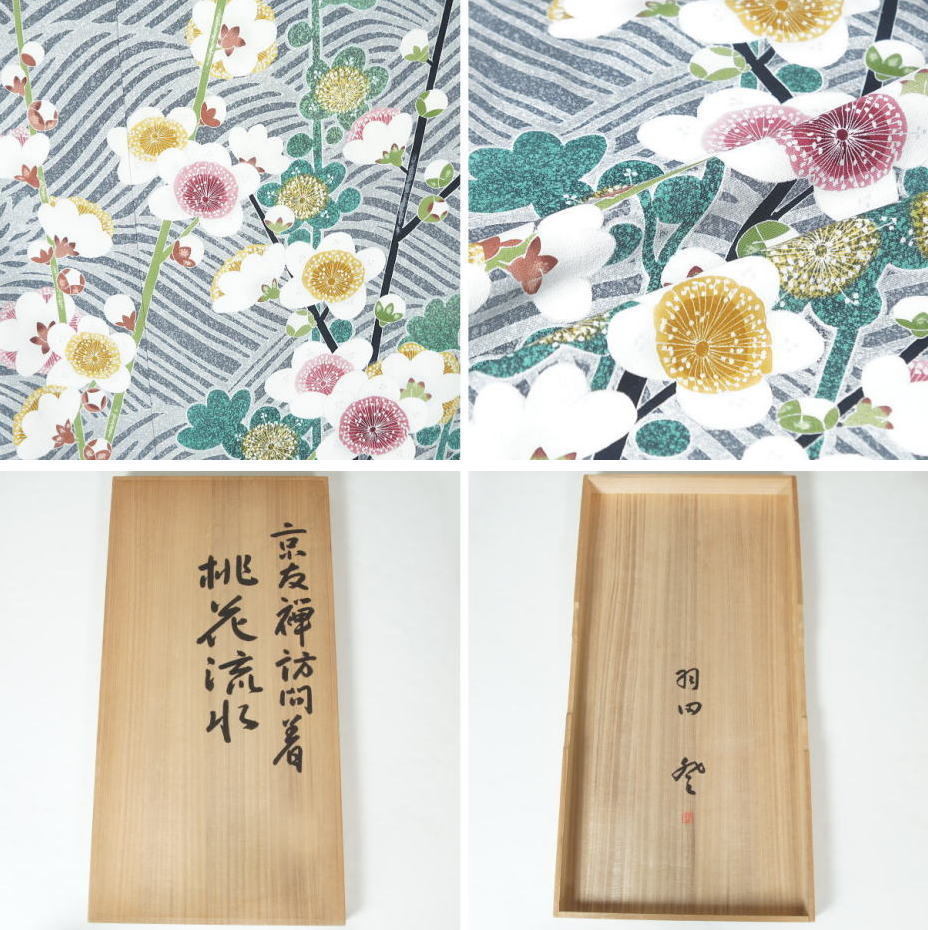 京友禅訪問着
桃花流水
羽田登